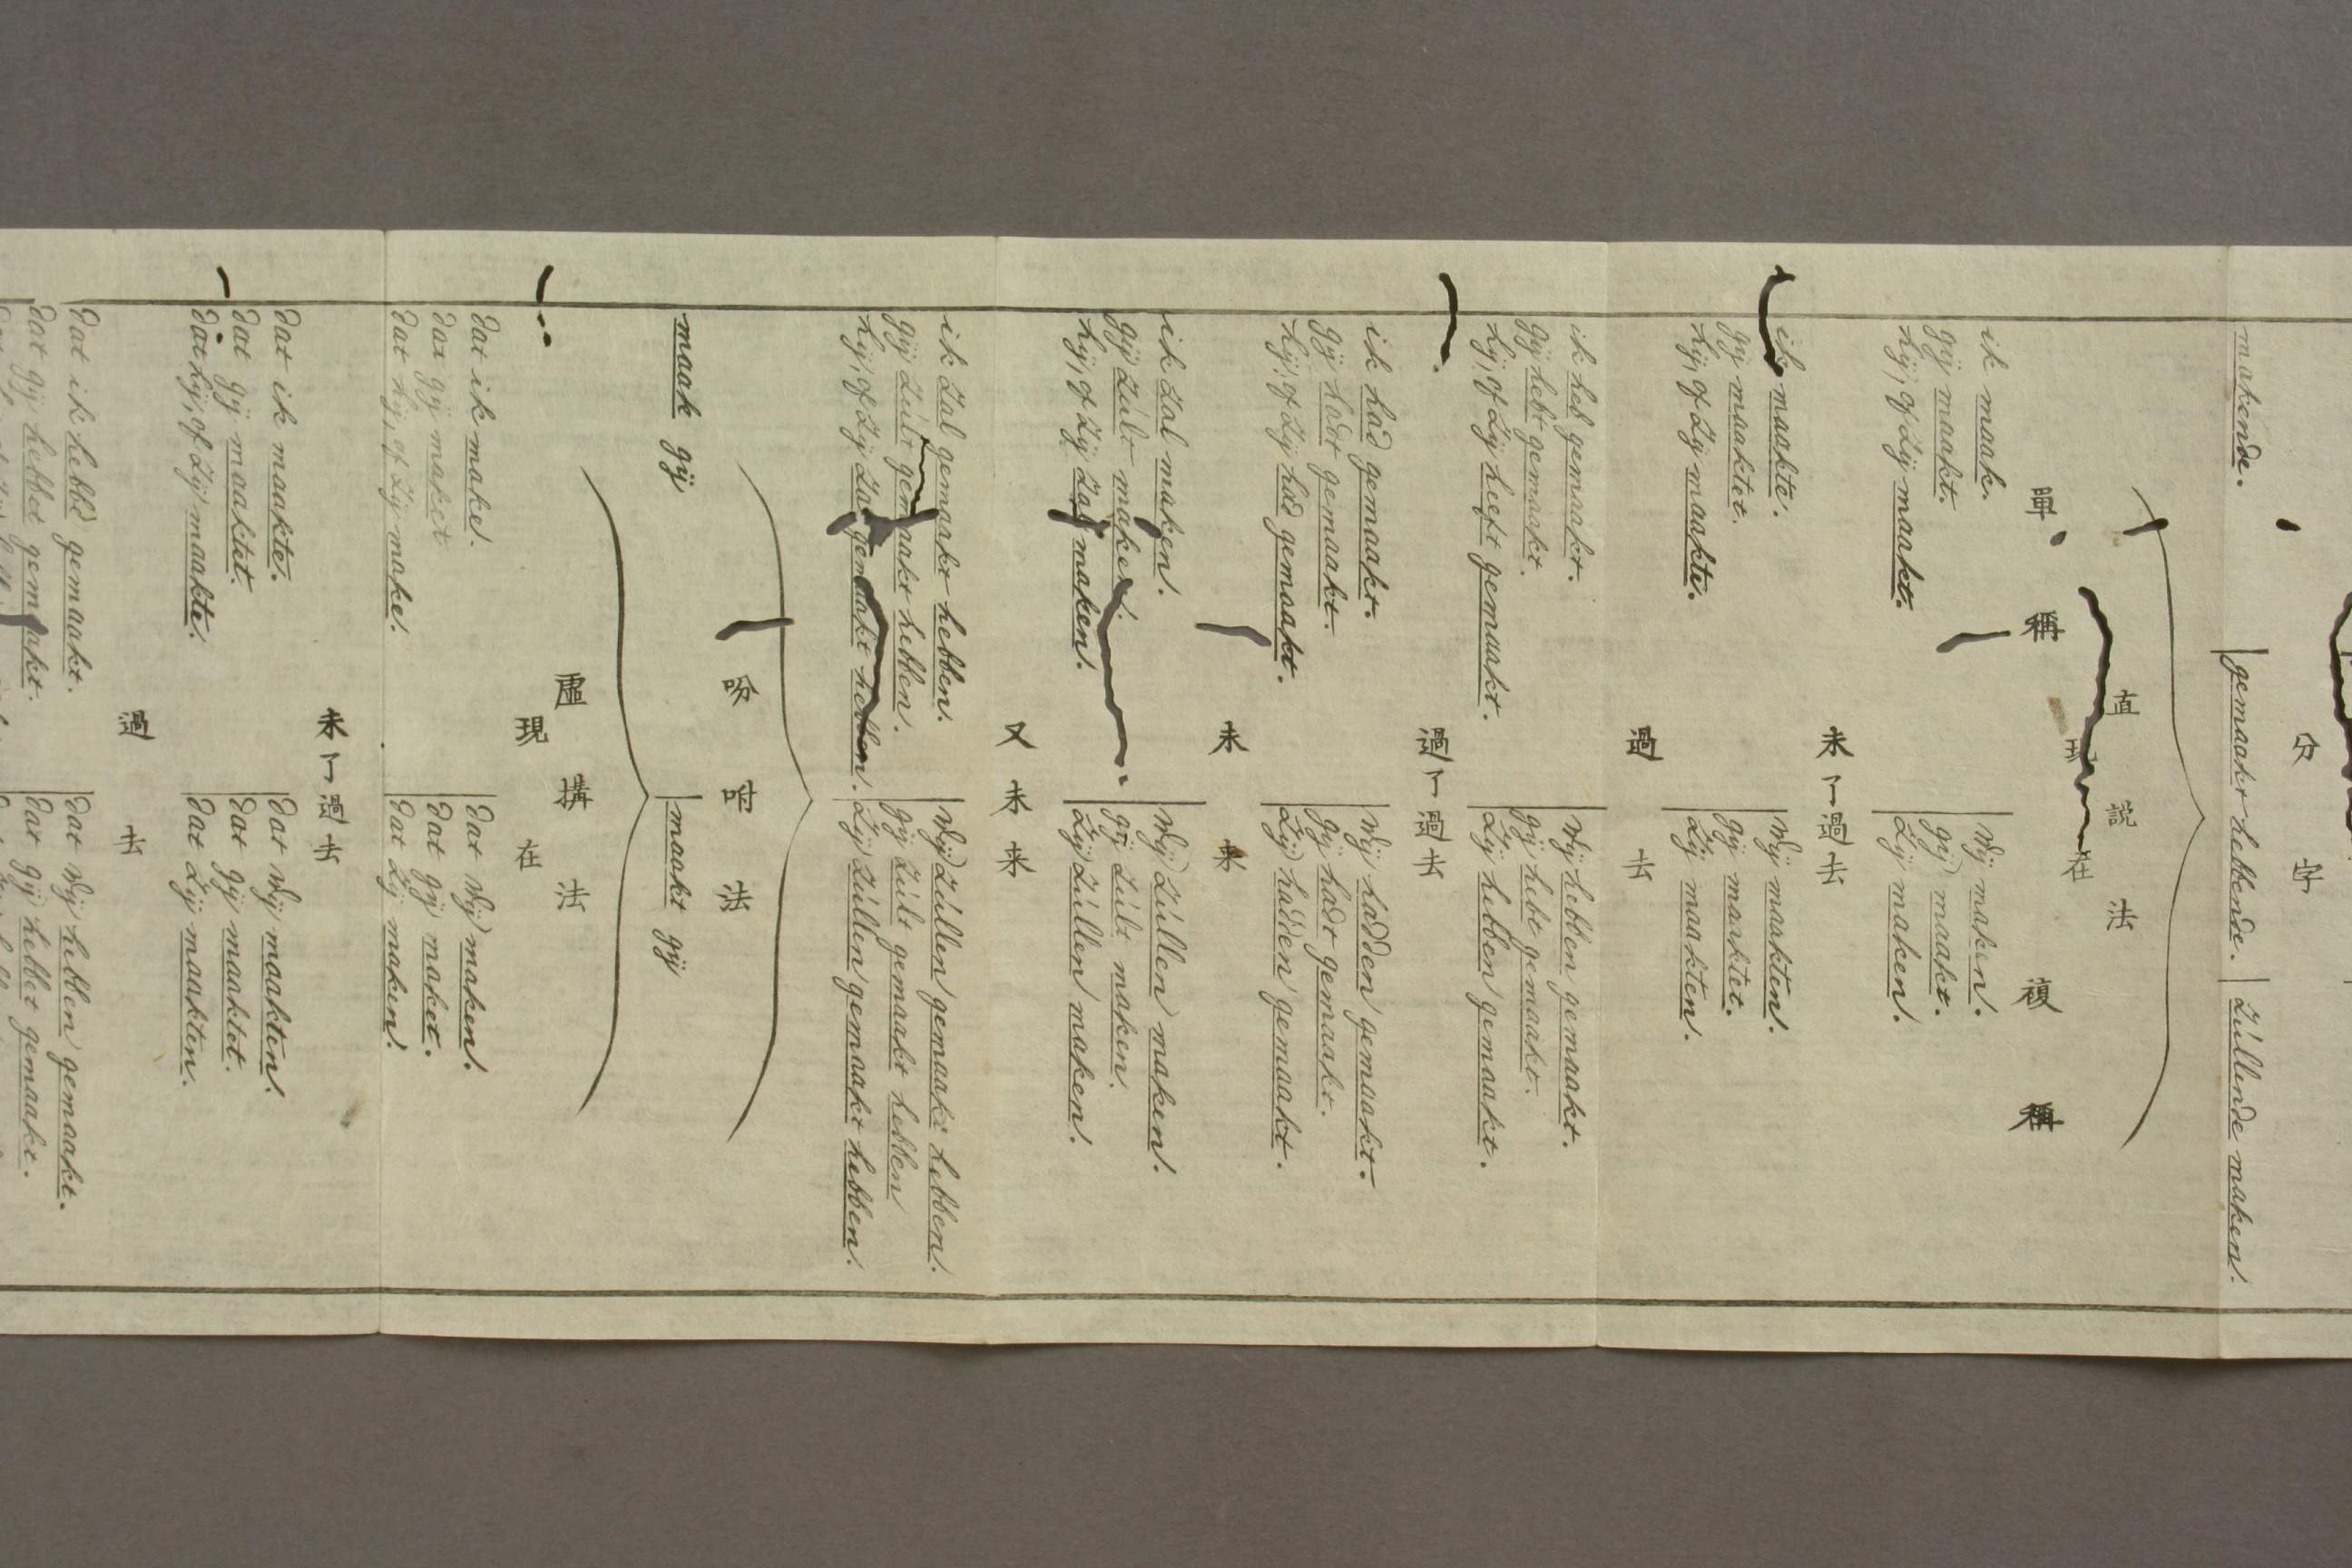 分字
makende. gemaakt hebbende. zúllende maken.
直説法
現在
單稱 複稱
ik maak. wij maken.
gij maakt. gij maakt.
hij, of zij maakt. zij maken.
未了過去
ik maakte. wij maakten.
gij maaktet. gij maaktet.
hij, of zij maakte. zij maakten.
過去
ik heb gemaakt. wij hebben gemaakt.
gij hebt gemaakt. gij hebt gemaakt.
hij, of zij heeft gemaakt. zij hebben gemaakt.
過了過去
ik had gemaakt. wij hadden gemaakt.
gij hadt gemaakt. gij hadt gemaakt.
hij, of zij had gemaakt. zij hadden gemaakt.
未来
ik zal maken. wij zúllen maken.
gij zúlt maken. gij zúlt maken.
hij, of zij zal maken. zij zúllen maken.
又未来
ik zal gemaakt hebben. wij zúllen gemaakt hebben.
gij zúlt gemaakt hebben. gij zúlt gemaakt hebben
hij, of zij zal gemaakt hebben. zij zúllen gemaakt hebben.
吩咐法
maak gij maakt gij
虚搆法
現在
dat ik make. dat wij maken.
dat gij maket dat gij maket.
dat hij, of zij make. dat zij maken.
未了過去
dat ik maakte. dat wij maakten.
dat gij maaktet. dat gij maaktet.
dat hij, of zij maakte. dat zij maakten.
過去
dat ik hebbe gemaakt. dat wij hebben gemaakt.
dat gij hebbet gemaakt. dat gij hebbet gemaakt.